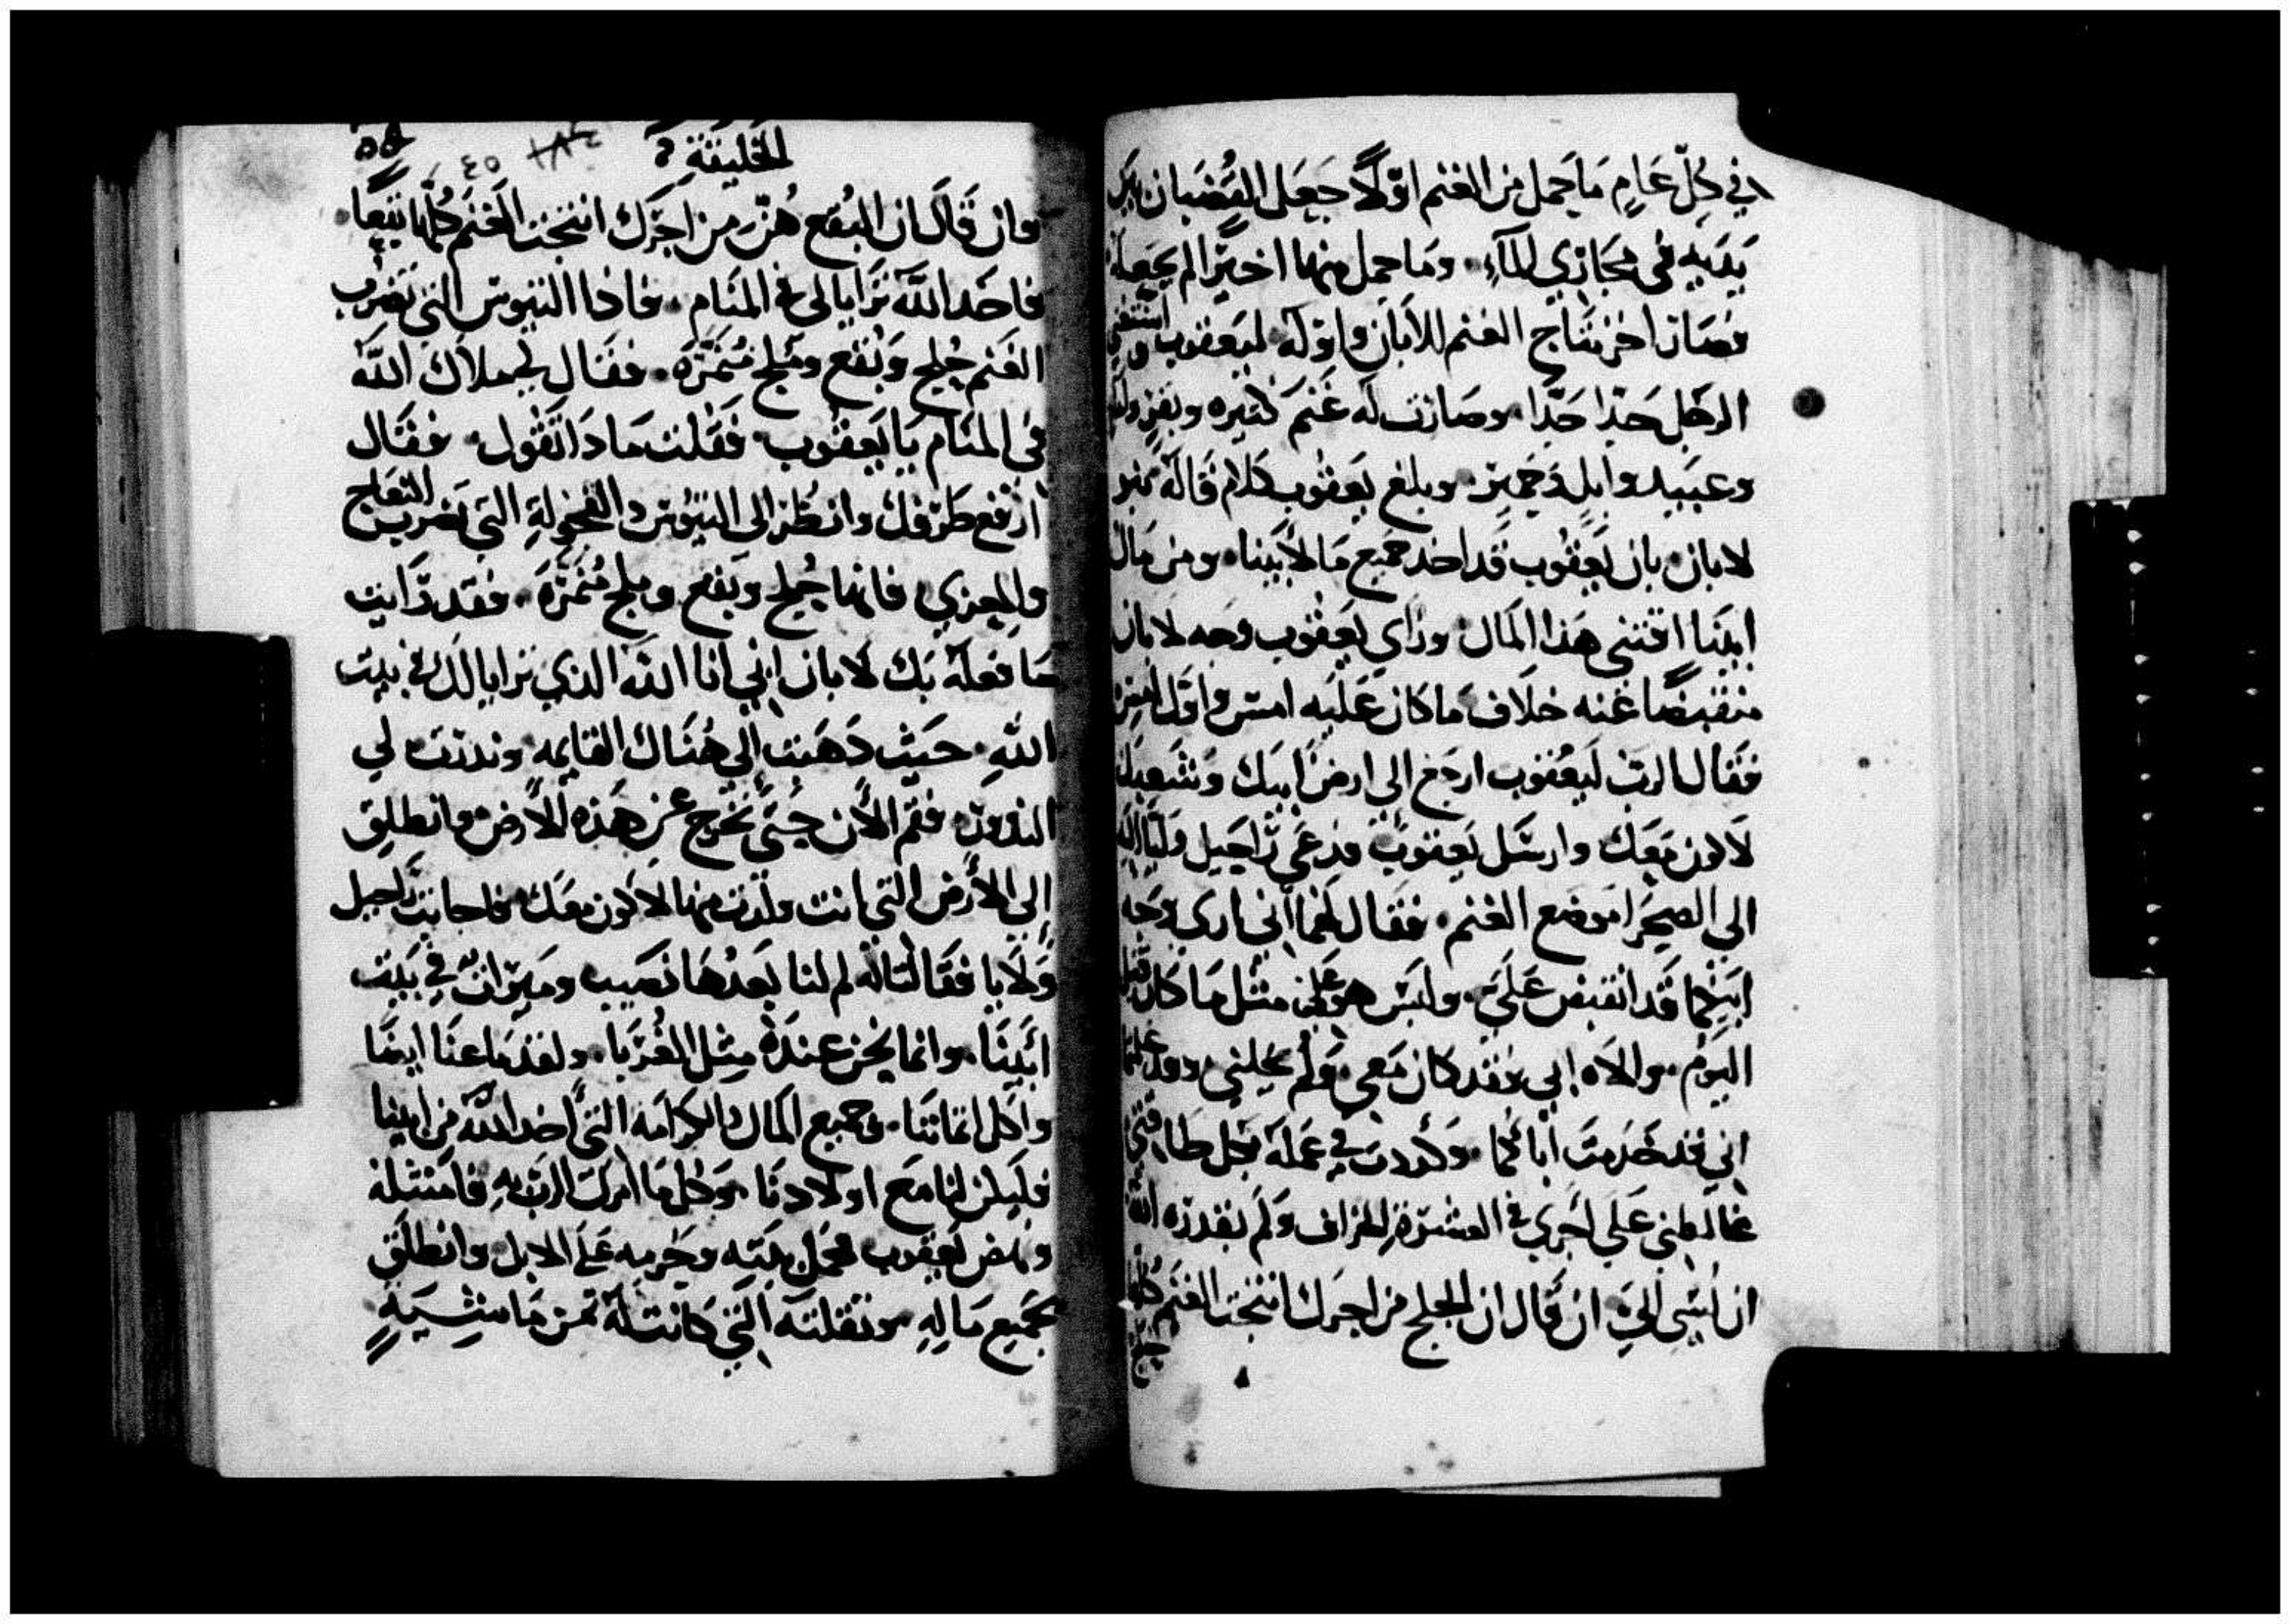 في كل عام ما يحمل من الغنم اولا جعل القضبان بين
يديه في مجاري المآء وما حمل منها اخيرا لم يجعله
فصار اخر نتاج الغنم للابان واوله ليعقوب واستغنى
الرجل جدا جدا وصارت له غنم كثيره وبقر
وعبيد وابل وحمير وبلغ يعقوب كلام قاله بنو
لابان بان يعقوب قد اخد جميع ما لابينا ومن مال
ابينا اقتنى هذا المال وراي يعقوب وجه لابان
منقبضا عنه خلاف ما كان عليه امس واول امس
فقال الرب ليعقوب ارجع الي ارض ابيك وشعبك
لاكون معك وارسل يعقوب فدعى راحيل وليا
الي الصحرا موضع الغنم فقال لهما اني اري وجه
ابيكما قد انقبض علي وليس هو مثل ما كان قبل
اليوم والاه ابي فقد كان معي ولم يخلني
اني قد خدمت اباكما وكددت في عمله
غالطني علي اجري في العشرة الخراف ولم يقدره الله
ان يسي الي ان قال ان الجلح من اجرك انتجت الغنم كلها
جلح
الخليقة
٤٥ ١٨٤
وان قال ان البقع هن من اجرك انتجت الغنم كلها بقعا
فاحد الله ترايا لي في المنام فاذا التيوس التي تضرب
الغنم جلح وبقع وملح منمره فقال لي ملاك الله
في المنام يا يعقوب فقلت مادا تقول فقال
ارفع طرفك وانظر الى التيوس والفحولة التي تضرب النعاج
والمعزي فانها جلح وبقع وملح منمره فقد رايت
ما فعله بك لابان اني انا الله الذي ترايا لك في بيت
الله حيث دهنت الي هناك القايمه وندرت لي
الندور فقم الان حتى تخرج عن هذه الارض وانطلق
الي الارض التي انت ولدت منها لاكون معك فاجابت راحيل
ولايا فقالتا له لم لنا بعدها نصيب وميراث في بيت
ابينا وانما نحن عنده مثل الغربا ولقد باعنا ايضا
واكل اتماننا وجميع المال والكرامة التي اخد الله من ابينا
فليكن لنا مع اولادنا وكل ما امرك الرب به فامتثله
ونهض يعقوب فحمل بنيه وحرمه على الابل وانطلق
بجميع ماله ونقلته التي كانت له من ماشيه